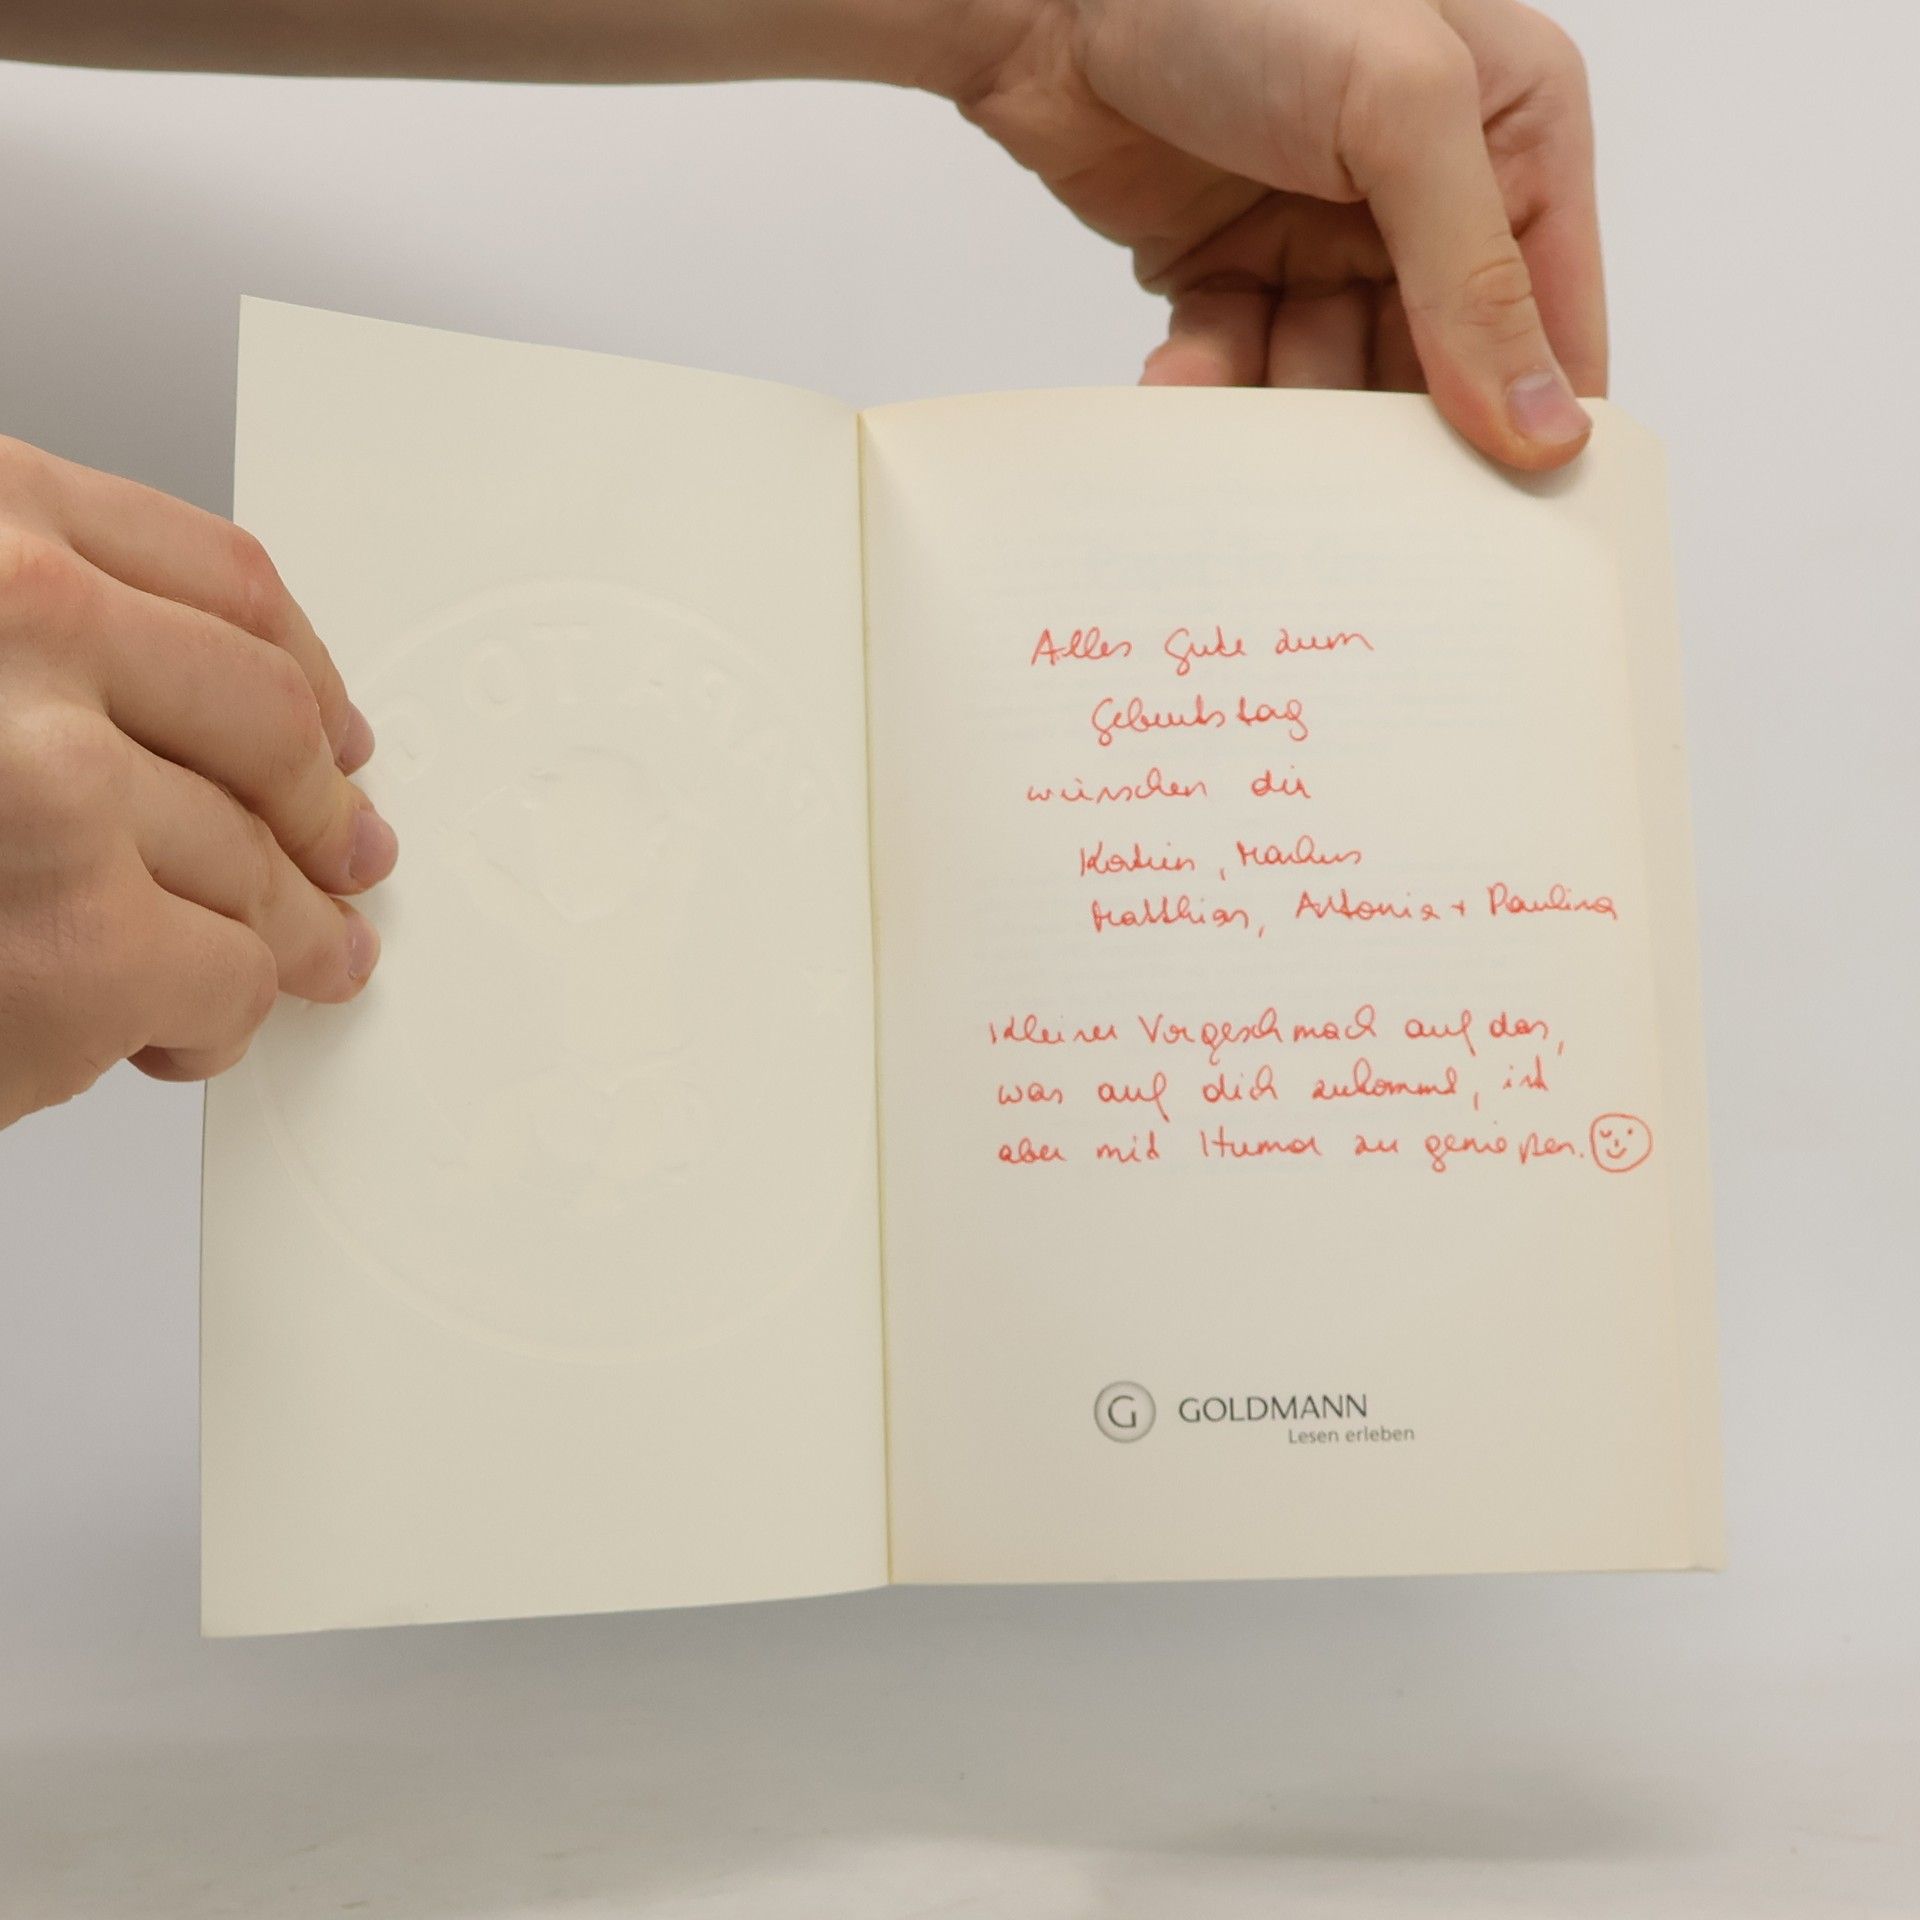 Alles Gute zum
Geburtstag
wünschen dir
Katrin, Markus
Matthias, Antonia + Paulina
Kleiner Vorgeschmack auf das,
was auf dich zukommt, ist
aber mit Humor zu genießen.
G GOLDMANN
Lesen erleben